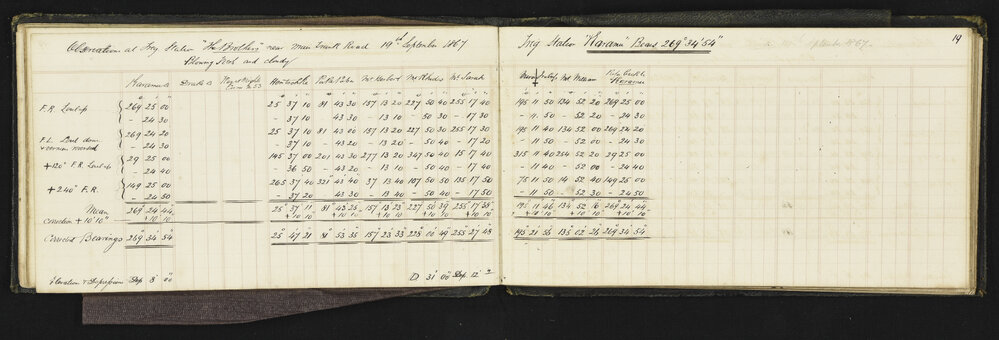 Observation at Trig Station "The Brothers" near Main Trunk Road 19th September 1867
Blowing and cloudy
Trig Station "Karamu" Bears 269° 34' 54"
19
Karamu Horotakeke Mt Herbert Mt Rhodes Mt Sarah
° ' "
F.R. 269 25 00 25 37 10 81 43 30 157 13 20 227 50 40 255 17 40 195 11 50 134 52 20 269 25 00
- 24 30 - 37 10 - 43 30 - 13 10 - 50 30 - 17 30 - 11 50 - 52 20 - 24 30
F.L. 269 24 20 25 37 10 81 43 00 157 13 20 227 50 30 255 17 30 195 11 40 134 52 00 269 24 20
- 24 30 - 37 10 - 43 20 - 13 20 - 50 40 - 17 20 - 11 50 - 52 00 - 24 30
+120° F.R. 29 25 00 145 37 00 201 43 30 277 13 20 347 50 40 15 17 40 315 11 40 254 52 20 29 25 00
- 24 40 - 36 50 - 43 20 - 13 10 - 50 40 - 17 40 - 11 40 - 52 00 - 24 40
+240° F.R. 149 25 00 265 37 40 321 43 40 37 13 40 107 50 50 135 17 50 75 11 50 14 52 40 149 25 00
- 24 50 - 37 20 - 43 30 - 13 40 - 50 40 - 17 50 - 11 50 - 52 30 - 24 50
Mean 269 24 44 25 37 11 81 43 25 157 13 23 227 50 39 255 17 38 195 11 46 134 52 16 269 24 44
Correction + 10' 10" + 10 10 + 10 10 + 10 10 + 10 10 + 10 10 + 10 10 + 10 10 + 10 10 + 10 10
Correct Bearings 269 34 54 25 47 21 81 53 35 157 23 33 228 00 49 255 27 48 195 21 56 135 02 26 269 34 54
Elevation & Depression Dep 8 00 D 31 00 Dep. 12